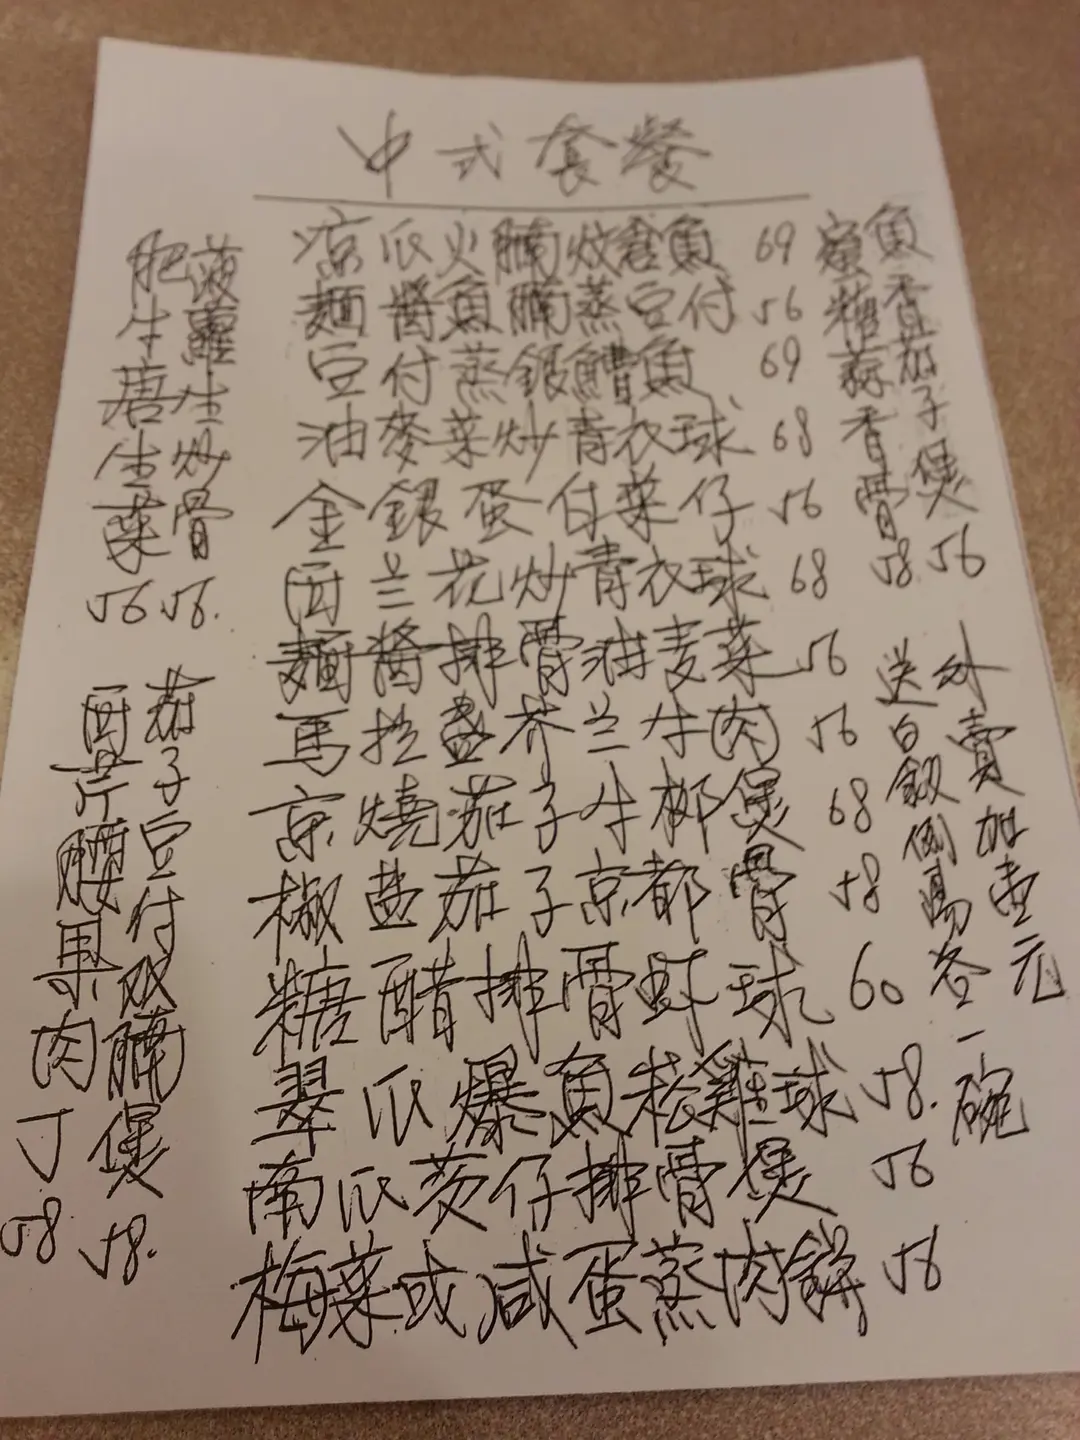 中式套餐
凉瓜火腩炆倉魚 69
麵醬魚腩蒸豆付 56
豆付蒸銀鱈魚 69
油麥菜炒青衣球 68
金銀蛋白菜仔 56
西兰花炒青衣球 68
麵醬排骨油麦菜 56
馬拉盞芥兰牛肉 56
京燒茄子牛柳煲 68
椒盐茄子京都骨 58
糖醋排骨虾球 60
翠瓜爆魚松雞球 58.
南瓜茨仔排骨煲 56
梅菜或咸蛋蒸肉餅 56
魚香茄子煲 56
蒜香骨 58
菠蘿生炒骨 56.
肥牛唐生菜 56
茄子豆付双腩煲 58.
西芹腰果肉丁 58
外賣加壹元
送白飯例湯各一碗